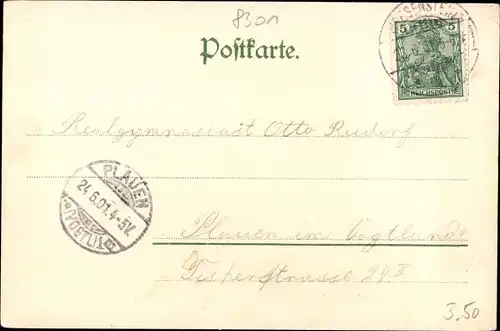 8301
Postkarte.
5 5
REICHSPOST
Realgymnasiast Otto Rudorf
PLAUEN
24.6.01.4-5V.
(VOGTL)
Plauen im Vogtlande
Fischerstrasse 24 II
3,50